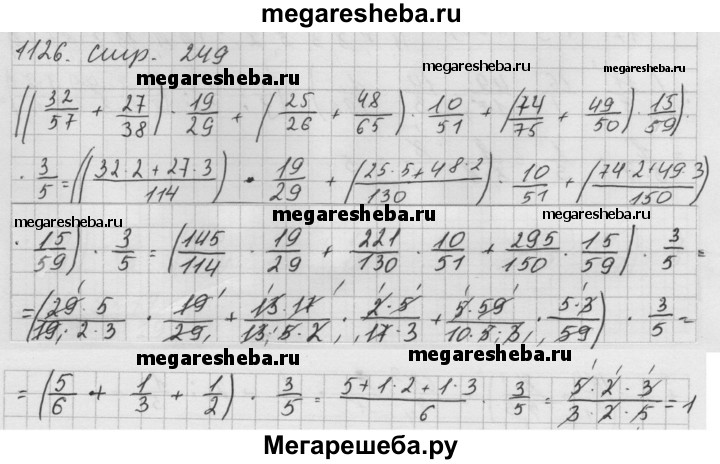 megaresheba.ru
1126. стр. 249
megaresheba.ru megaresheba.ru
((32/57 + 27/38) · 19/29 + (25/26 + 48/65) · 10/51 + (74/75 + 49/50) · 15/59) ·
· 3/5 = ((32·2+27·3)/114) · 19/29 + (25·5+48·2)/130) · 10/51 + (74·2+49·3)/150)
megaresheba.ru megaresheba.ru megaresheba.ru
· 15/59) · 3/5 = (145/114 · 19/29 + 221/130 · 10/51 + 295/150 · 15/59) · 3/5 =
= (29·5/19·2·3 · 19/29 + 13·17/13·5·2 · 2·5/17·3 + 5·59/10·5·3 · 5·3/59) · 3/5 =
megaresheba.ru megaresheba.ru
= (5/6 + 1/3 + 1/2) · 3/5 = 5+1·2+1·3/6 · 3/5 = 5·2·3/3·2·5 = 1
Мегарешеба.ру